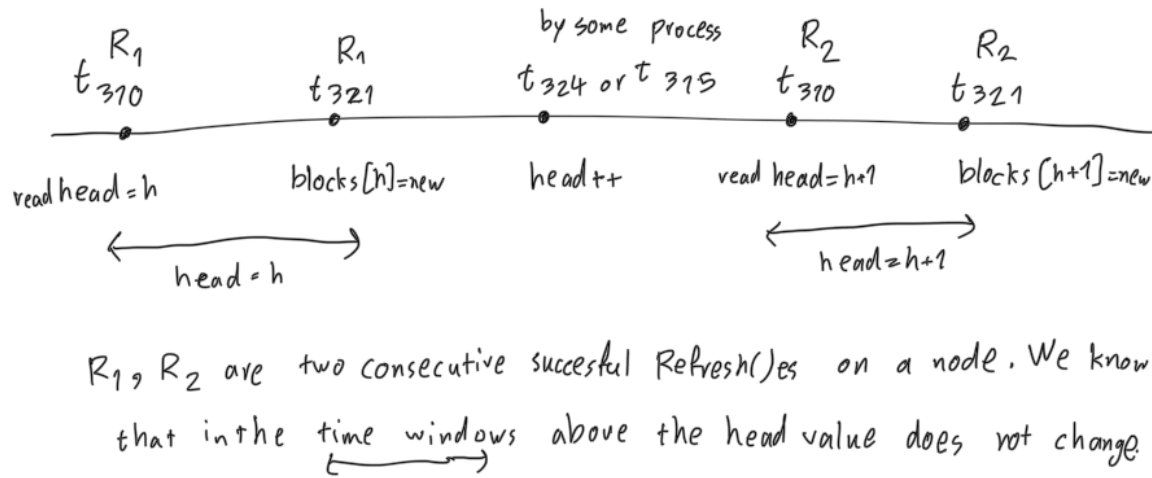 by some process
R1 R1 R2 R2
t310 t321 t324 or t315 t310 t321
read head = h blocks[h]=new head++ read head=h+1 blocks[h+1]=new
head = h head=h+1
R1, R2 are two consecutive succesful Refresh()es on a node. We know
that in the time windows above the head value does not change.